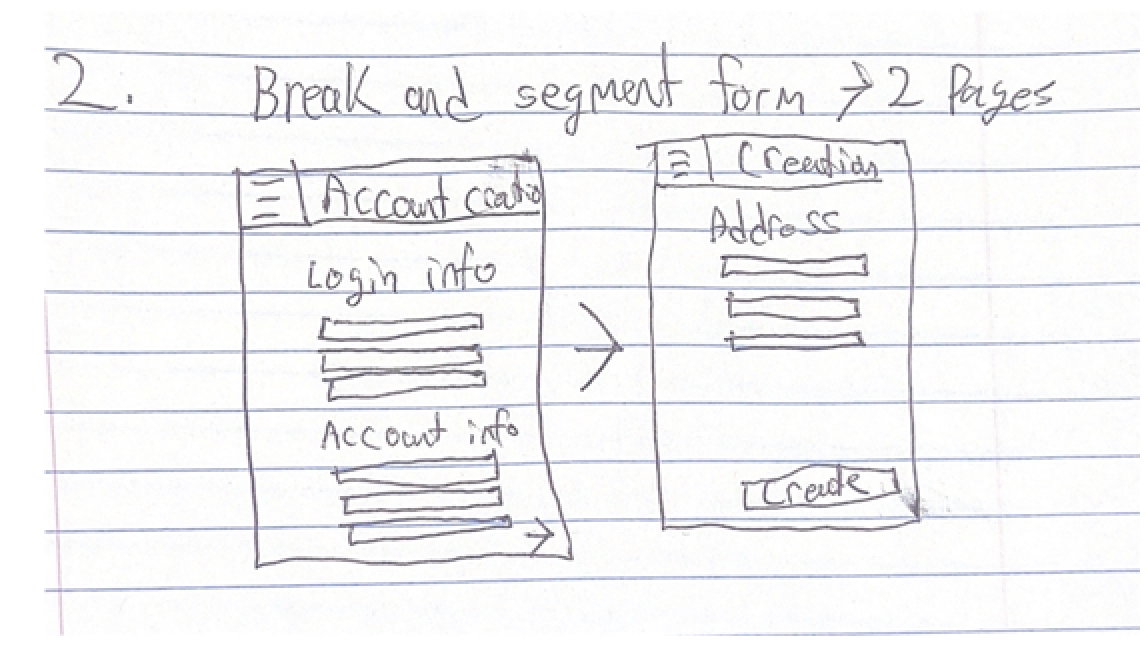 2. Break and segment form → 2 Pages
Account creatio
Login info
Account info
Creation
Address
Create